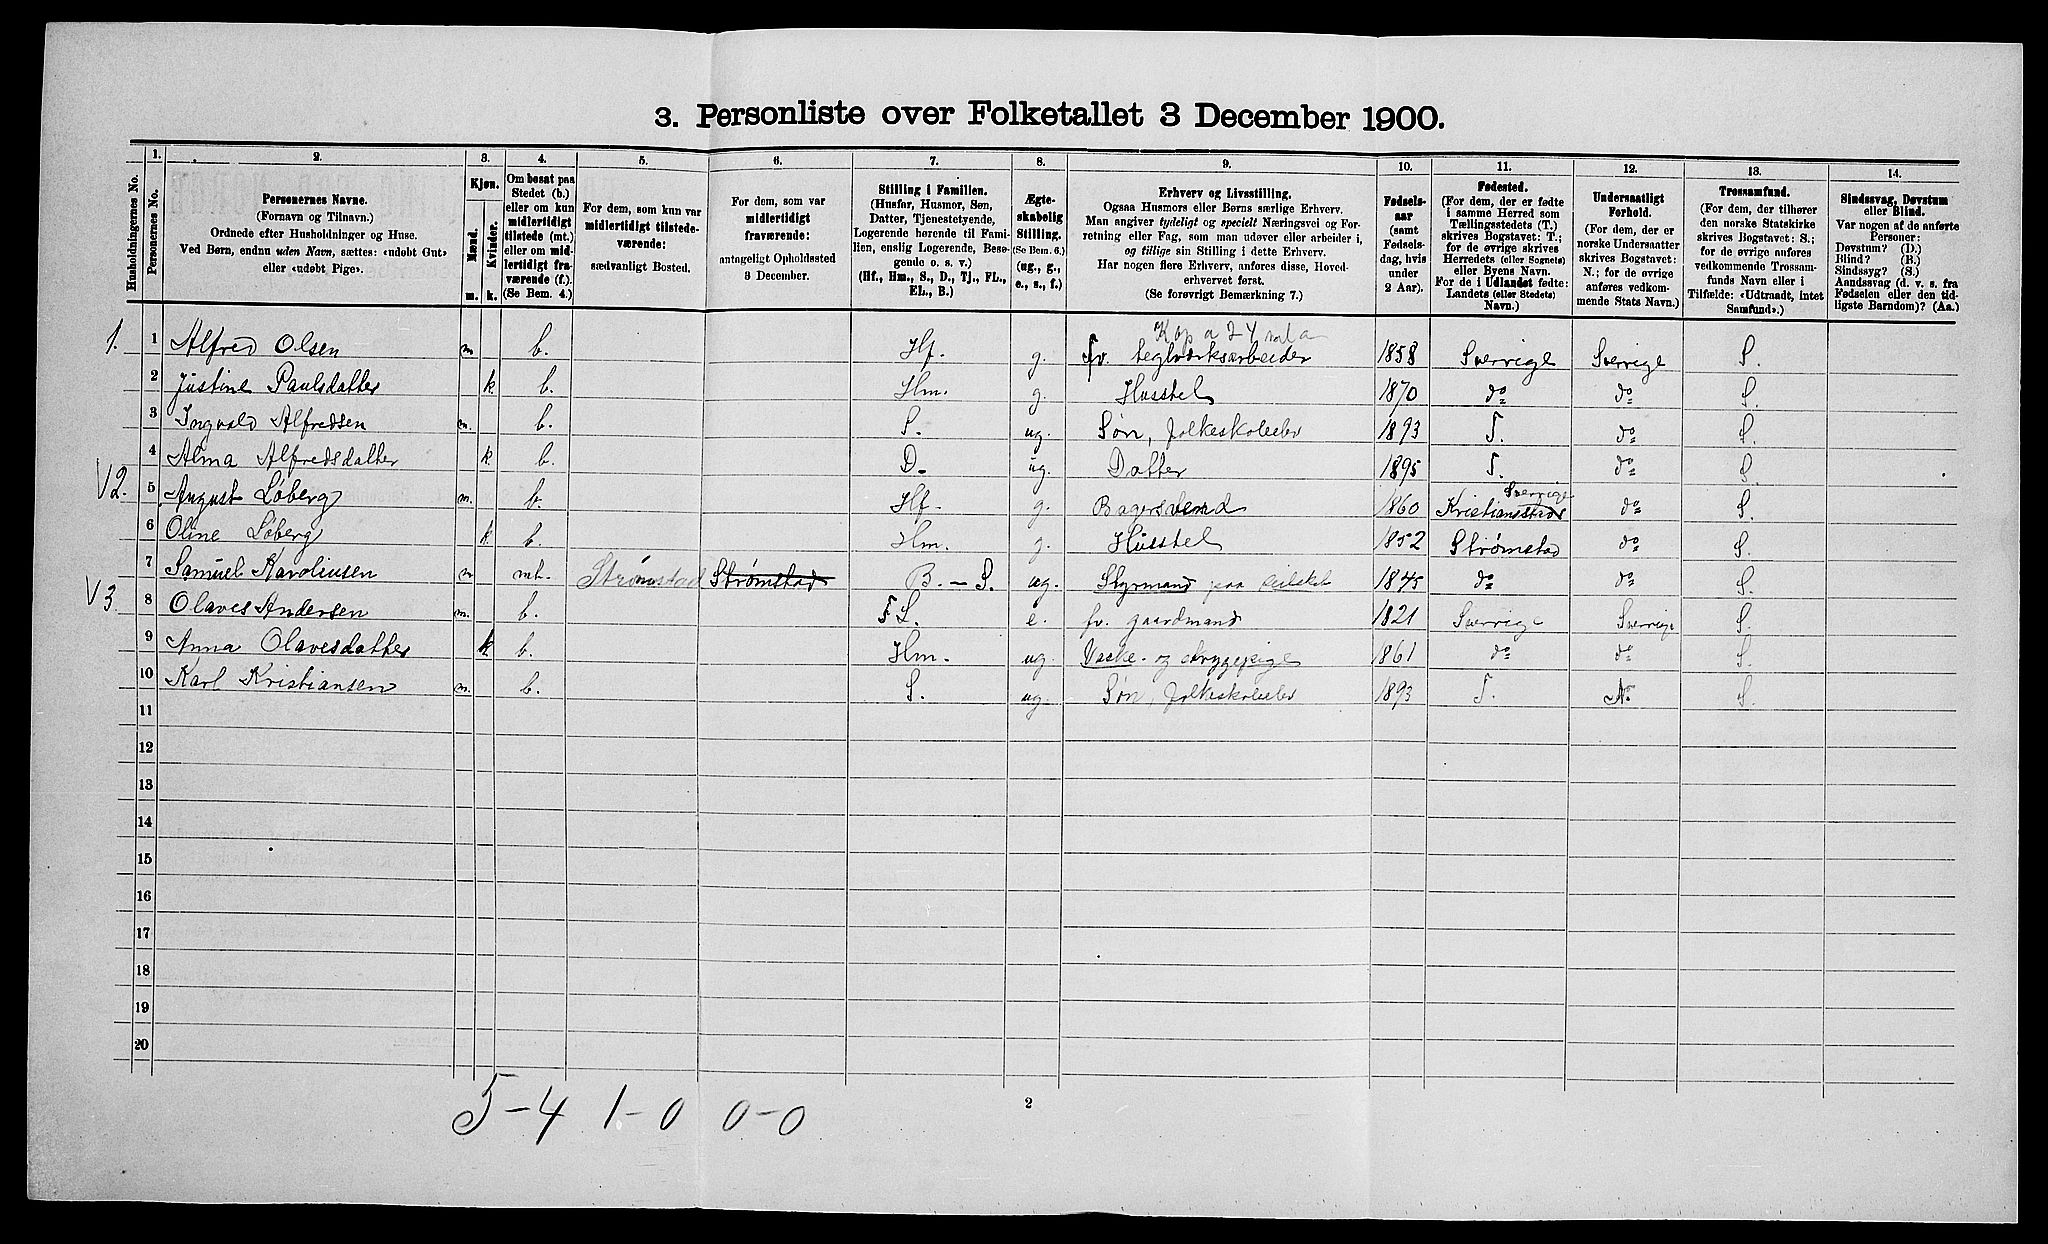 3. Personliste over Folketallet 3 December 1900.
Husholdningernes No.
1.
Personernes No.
2.
Personernes Navne.
(Fornavn og Tilnavn.)
Ordnede efter Husholdninger og Huse.
Ved Børn, endnu uden Navn, sættes: «udøbt Gut»
eller «udøbt Pige».
3.
Kjøn.
Mænd.
Kvinder.
m.
k.
4.
Om bosat paa
Stedet (b.)
eller om kun
midlertidigt
tilstede (mt.)
eller om mid-
lertidigt fra-
værende (f.).
(Se Bem. 4.)
5.
For dem, som kun var
midlertidigt tilstede-
værende:
sædvanligt Bosted.
6.
For dem, som var
midlertidigt
fraværende:
antageligt Opholdssted
3 December.
7.
Stilling i Familien.
(Husfar, Husmor, Søn,
Datter, Tjenestetyende,
Logerende hørende til Fami-
lien, enslig Logerende, Besø-
gende o. s. v.)
(Hf., Hm., S., D., Tj., FL.,
EL., B.)
8.
Ægte-
skabelig
Stilling.
(Se Bem. 6.)
(ug., g.,
e., s., f.)
9.
Erhverv og Livsstilling.
Ogsaa Husmors eller Børns særlige Erhverv.
Man angiver tydeligt og specielt Næringsvei og For-
retning eller Fag, som man udøver eller arbeider i,
og tillige sin Stilling i dette Erhverv.
Har nogen flere Erhverv, anføres disse, Hoved-
erhvervet først.
(Se forøvrigt Bemærkning 7.)
10.
Fødsels-
aar
(samt
Fødsels-
dag, hvis
under
2 Aar).
11.
Fødested.
(For dem, der er fødte
i samme Herred som
Tællingsstedets (T.)
skrives Bogstavet: T.;
for de øvrige skrives
Herredets (eller Sognets)
eller Byens Navn.
For de i Udlandet fødte:
Landets (eller Stedets)
Navn.)
12.
Undersaatligt
Forhold.
(For dem, der er
norske Undersaatter
skrives Bogstavet:
N.; for de øvrige
anføres vedkom-
mende Stats Navn.)
13.
Trossamfund.
(For dem, der tilhører
den norske Statskirke
skrives Bogstavet: S.;
for de øvrige anføres
vedkommende Trossam-
funds Navn eller i
Tilfælde: «Udtraadt, intet
Samfund».)
14.
Sindssvag, Døvstum
eller Blind.
Var nogen af de anførte
Personer:
Døvstum? (D.)
Blind? (B.)
Sindssyg? (S.)
Aandssvag (d. v. s. fra
Fødselen eller den tid-
ligste Barndom)? (Aa.)
1. 1 Alfred Olsen m b. Hf. g. fv. teglværksarbeider 1858 Sverrige Sverrige S.
2 Justine Paulsdatter k. b. Hm. g. Husstel 1870 do do S.
3 Ingvald Alfredsen m. b. S. ug. Søn, folkeskoleelev 1893 T. do S.
4 Alma Alfredsdatter k. b. D. ug. Datter 1895 T. do S.
Sverrige
V2. 5 August Løberg m. b. Hf. g. Bagersvend 1860 Kristiansstad do S.
6 Oline Løberg k b. Hm. g. Husstel 1852 Strømstad do S.
7 Samuel Karoliusen m mt. Strømstad Strømstad B. - S. ug. Styrmand paa seilskib 1845 do do S.
V3. 8 Olaves Andersen m. b. FL. e. fv. gaardmand 1821 Sverrige Sverrige S.
9 Anna Olavesdatter k. b. Hm. ug. Vaske- og strygepige 1861 do do S.
10 Karl Kristiansen m. b. S. ug. Søn, folkeskoleelev 1893 T. N. S.
11
12
13
14
15
16
17
18
19
20
5-4 1-0 0-0
2